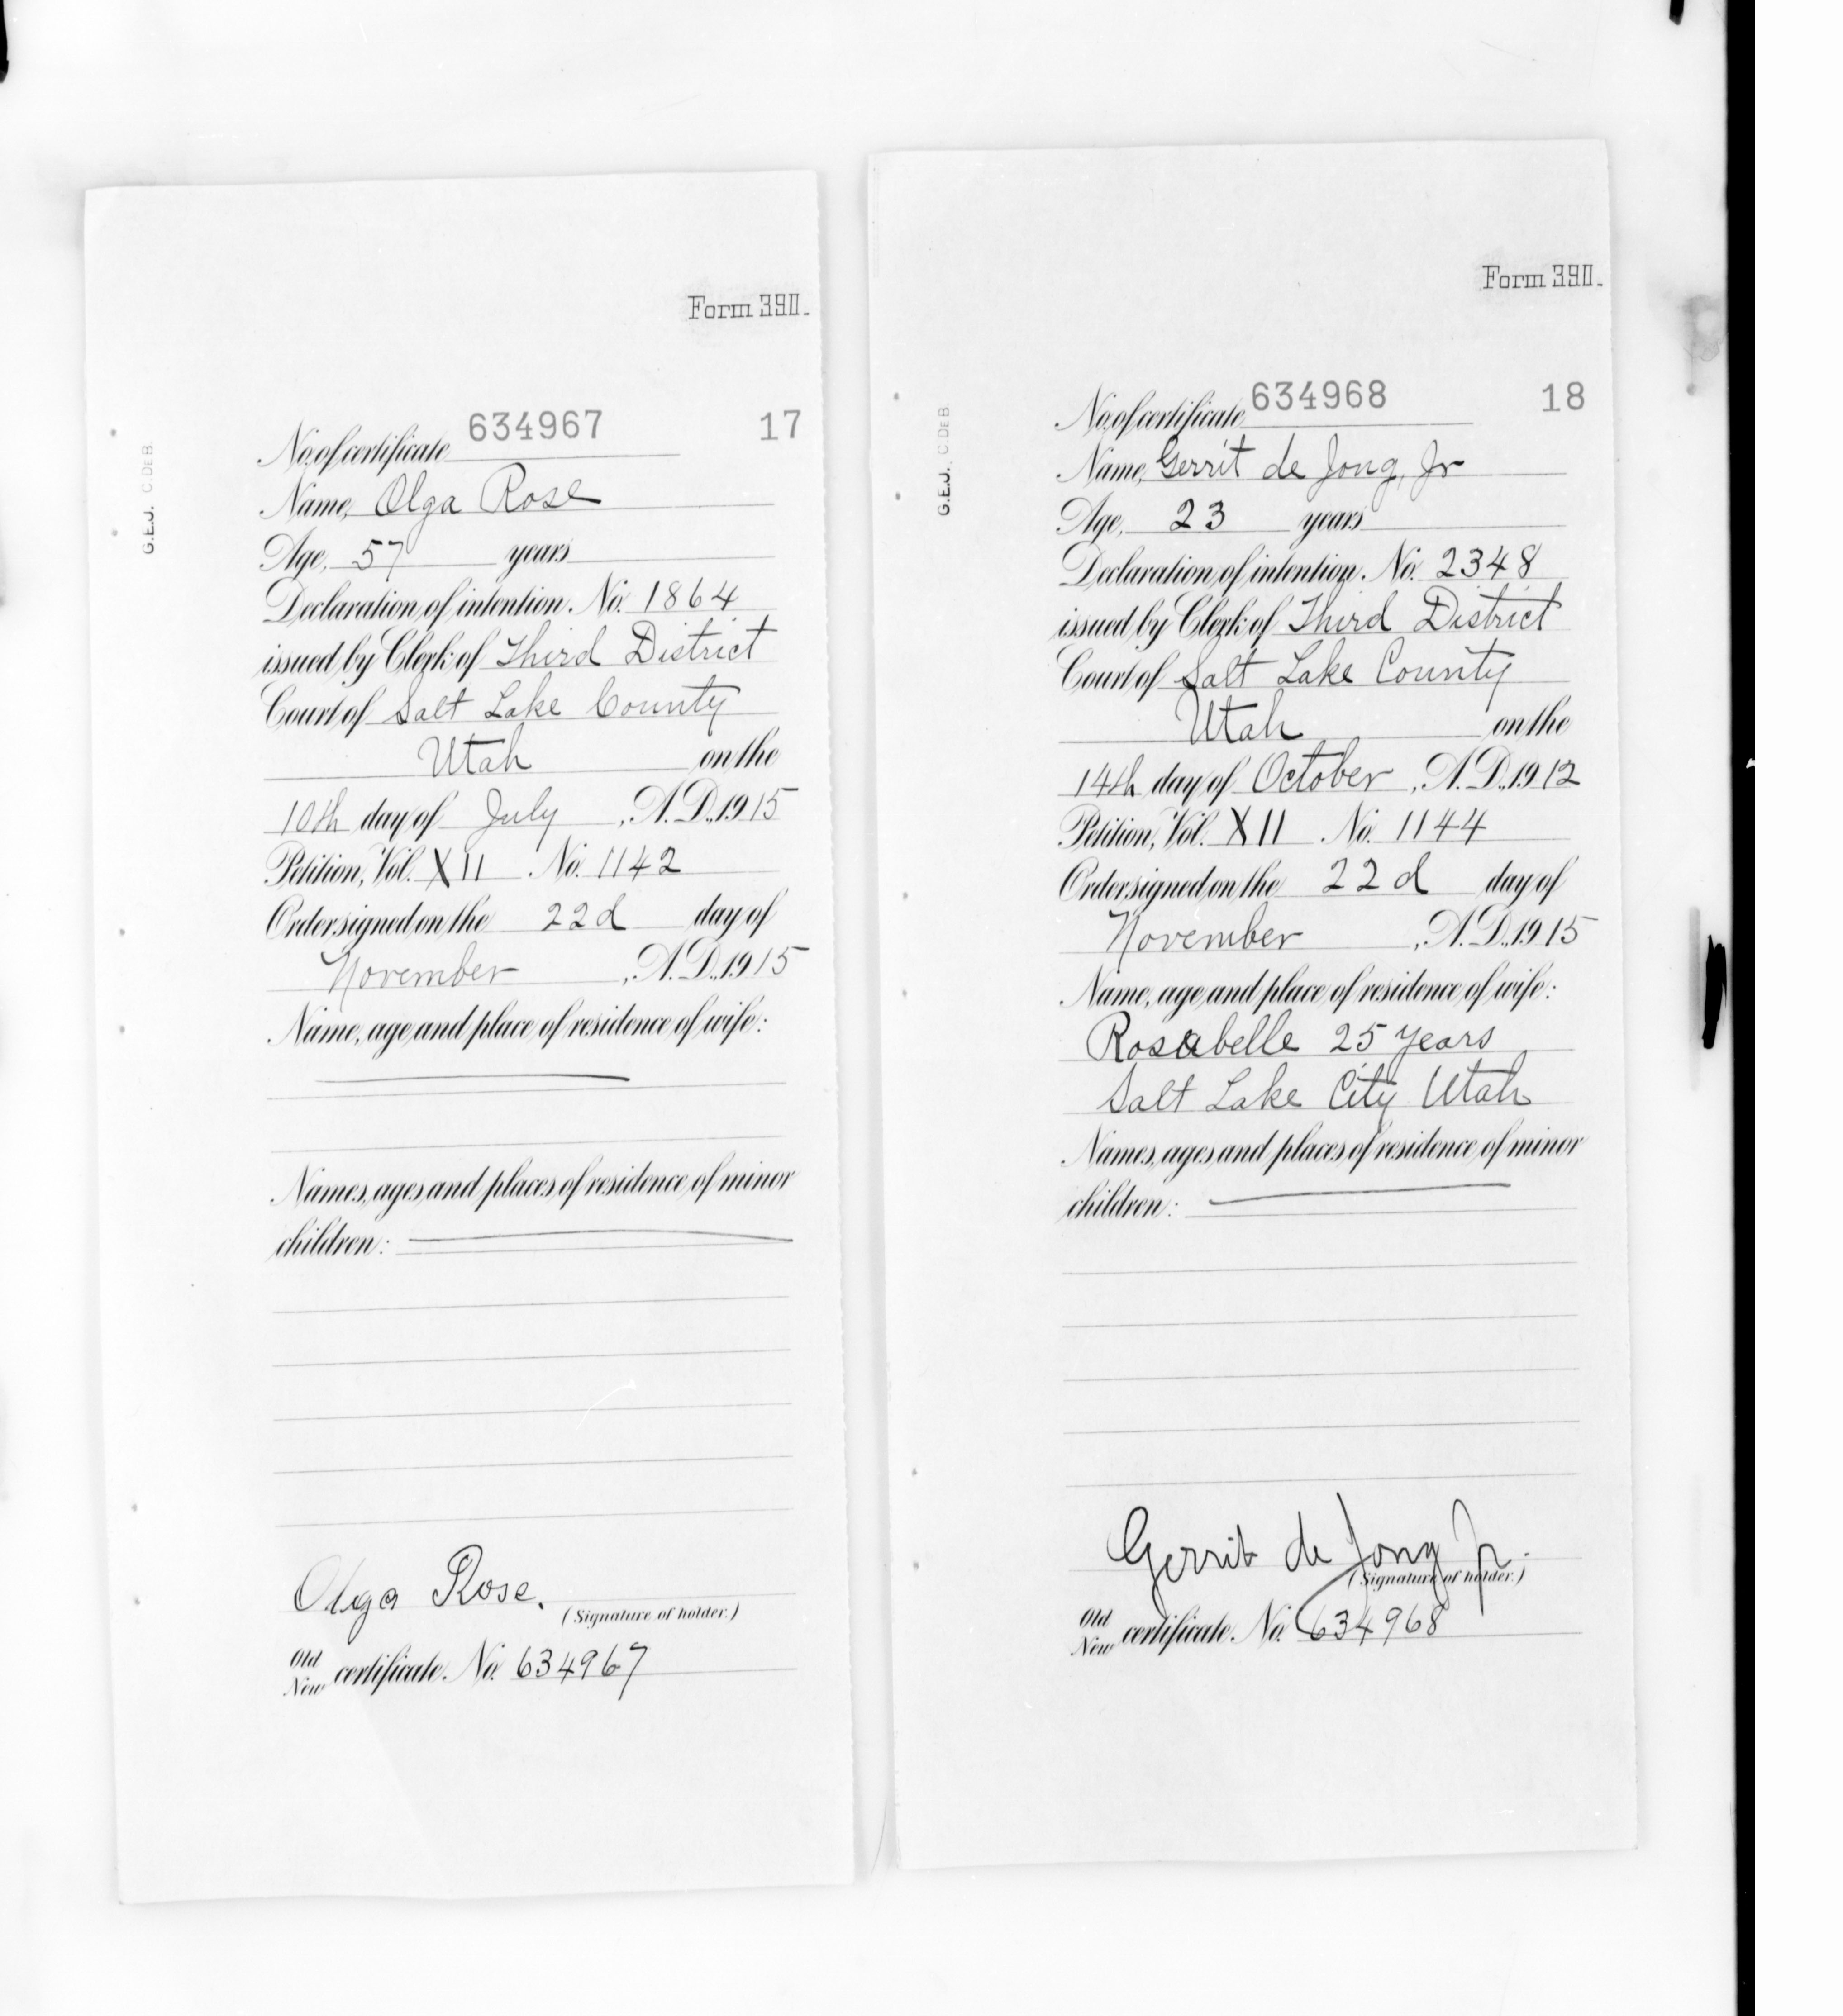 Form 390.
634967 17
No. of certificate
Name, Olga Rose
Age, 57 years
Declaration of intention. No. 1864
issued by Clerk of Third District
Court of Salt Lake County
Utah on the
10th day of July, A.D., 1915
Petition, Vol. XII No. 1142
Order signed on the 22d day of
November, A.D., 1915
Name, age and place of residence of wife:
Names, ages and places of residence of minor
children:
Olga Rose.
(Signature of holder.)
Old
New certificate. No. 634967
G.E.J. C.DEB.
Form 390.
634968 18
No. of certificate
Name, Gerrit de Jong, Jr
Age, 23 years
Declaration of intention. No. 2348
issued by Clerk of Third District
Court of Salt Lake County
Utah on the
14th day of October, A.D., 1912
Petition, Vol. XII No. 1144
Order signed on the 22d day of
November, A.D., 1915
Name, age and place of residence of wife:
Rosabelle 25 years
Salt Lake City Utah
Names, ages and places of residence of minor
children:
Gerrit de Jong Jr.
(Signature of holder.)
Old
New certificate. No. 634968
G.E.J. C.DEB.